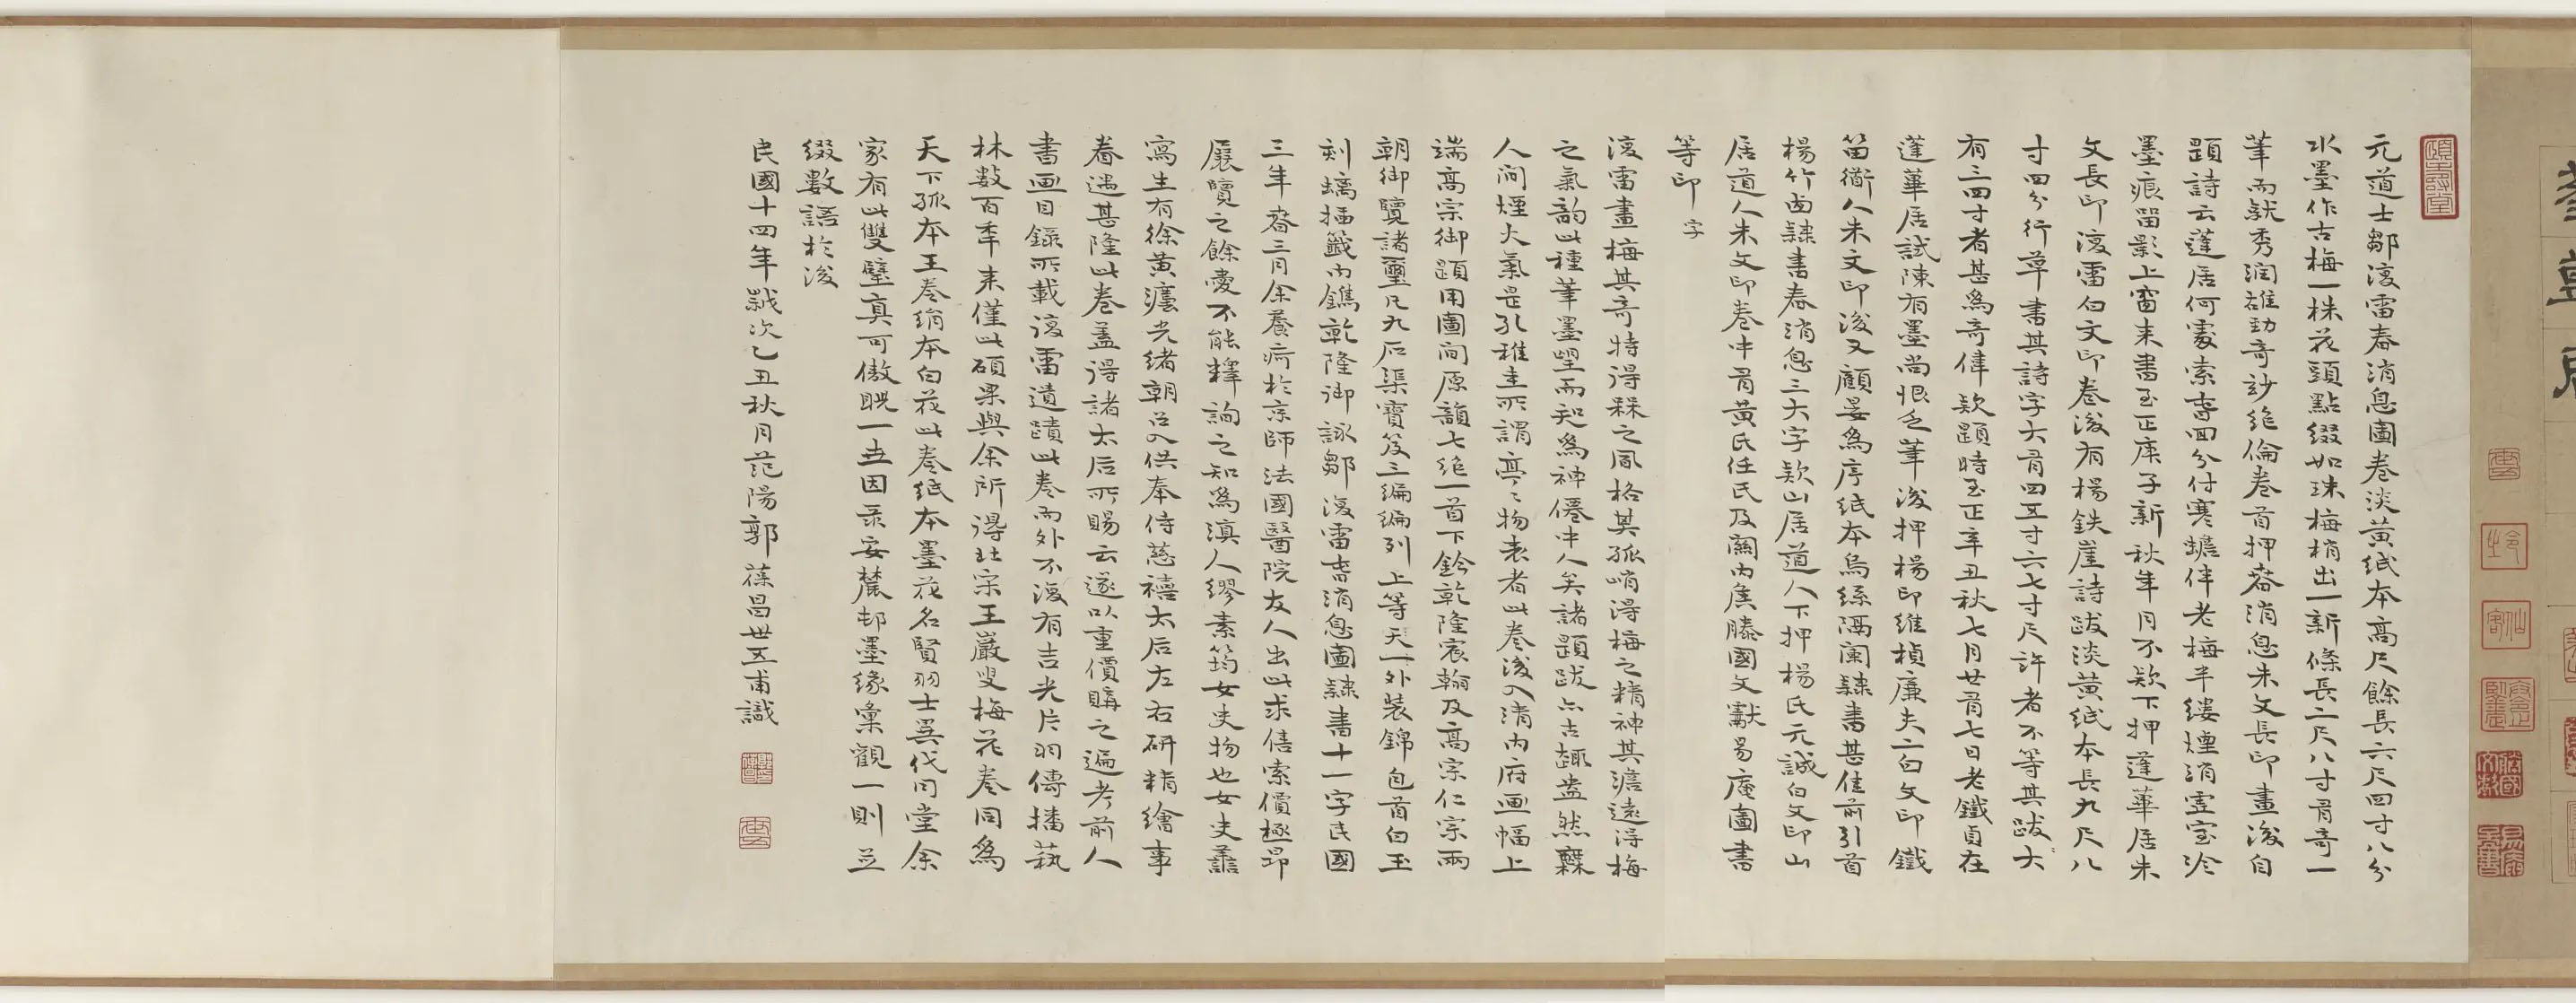 元道士鄒復雷春消息圖卷淡黃紙本高尺餘長六尺四寸八分
水墨作古梅一株花頭點綴如珠梅梢出一新條長二尺八寸有奇一
筆而就秀潤雄勁奇妙絶倫卷首押春消息朱文長印畫後自
題詩云蓬居何處索春回分付寒蟾伴老梅半縷煙消虛室冷
墨痕留影上窗來書至正庚子新秋年月不欵下押蓬蓽居朱
文長印復雷白文印卷後有楊鉄崖詩跋淡黃紙本長九尺八
寸四分行草書其詩字大有四五寸六七寸尺許者不等其跋大
有三四寸者甚爲奇偉欵題時至正辛丑秋七月廿有七日老鐵貞在
蓬蓽居試陳有墨尚恨乏筆後押楊印維楨廉夫二白文印鐵
笛衜人朱文印後又顧晏爲序紙本烏絲闌隸書甚佳前引首
楊竹西隸書春消息三大字欵山居道人下押楊氏元誠白文印山
居道人朱文印卷中有黃氏任氏及關內焦滕國文獻易庵圖書
等印 字
復雷畫梅其奇特得槑之風格其孤峭得梅之精神其澹遠得梅
之氣韵此種筆墨望而知爲神僊中人矣諸題跋亦古趣盎然無
人間煙火氣是孔稚圭所謂亭〻物表者此卷後入清內府画幅上
端高宗御題用圖間原韻七絶一首下鈐乾隆宸翰及高宗仁宗兩
朝御覽諸璽凡九石渠寶笈三編編列上等天一外裝錦包首白玉
刻螭插籤內鐫乾隆御詠鄒復雷春消息圖隸書十一字民國
三年春三月余養疴於京師法國醫院友人出此求售索價極昂
展覽之餘愛不能釋詢之知爲滇人繆素筠女史物也女史蕭
寫生有徐黃灋光緒朝召入供奉侍慈禧太后左右研精繪事
眷遇甚隆此卷蓋得諸太后所賜云遂以重價購之遍考前人
書画目錄所載復雷遺蹟此卷而外不復有吉光片羽傳播秇
林數百年來僅此碩果與余所得北宋王巖叟梅花卷同爲
天下孤本王卷絹本白花此卷紙本墨花名賢羽士異代同堂余
家有此雙璧真可傲睨一世因錄安麓邨墨緣彙觀一則並
綴數語於後
民國十四年歲次乙丑秋月范陽郭葆昌世五甫識